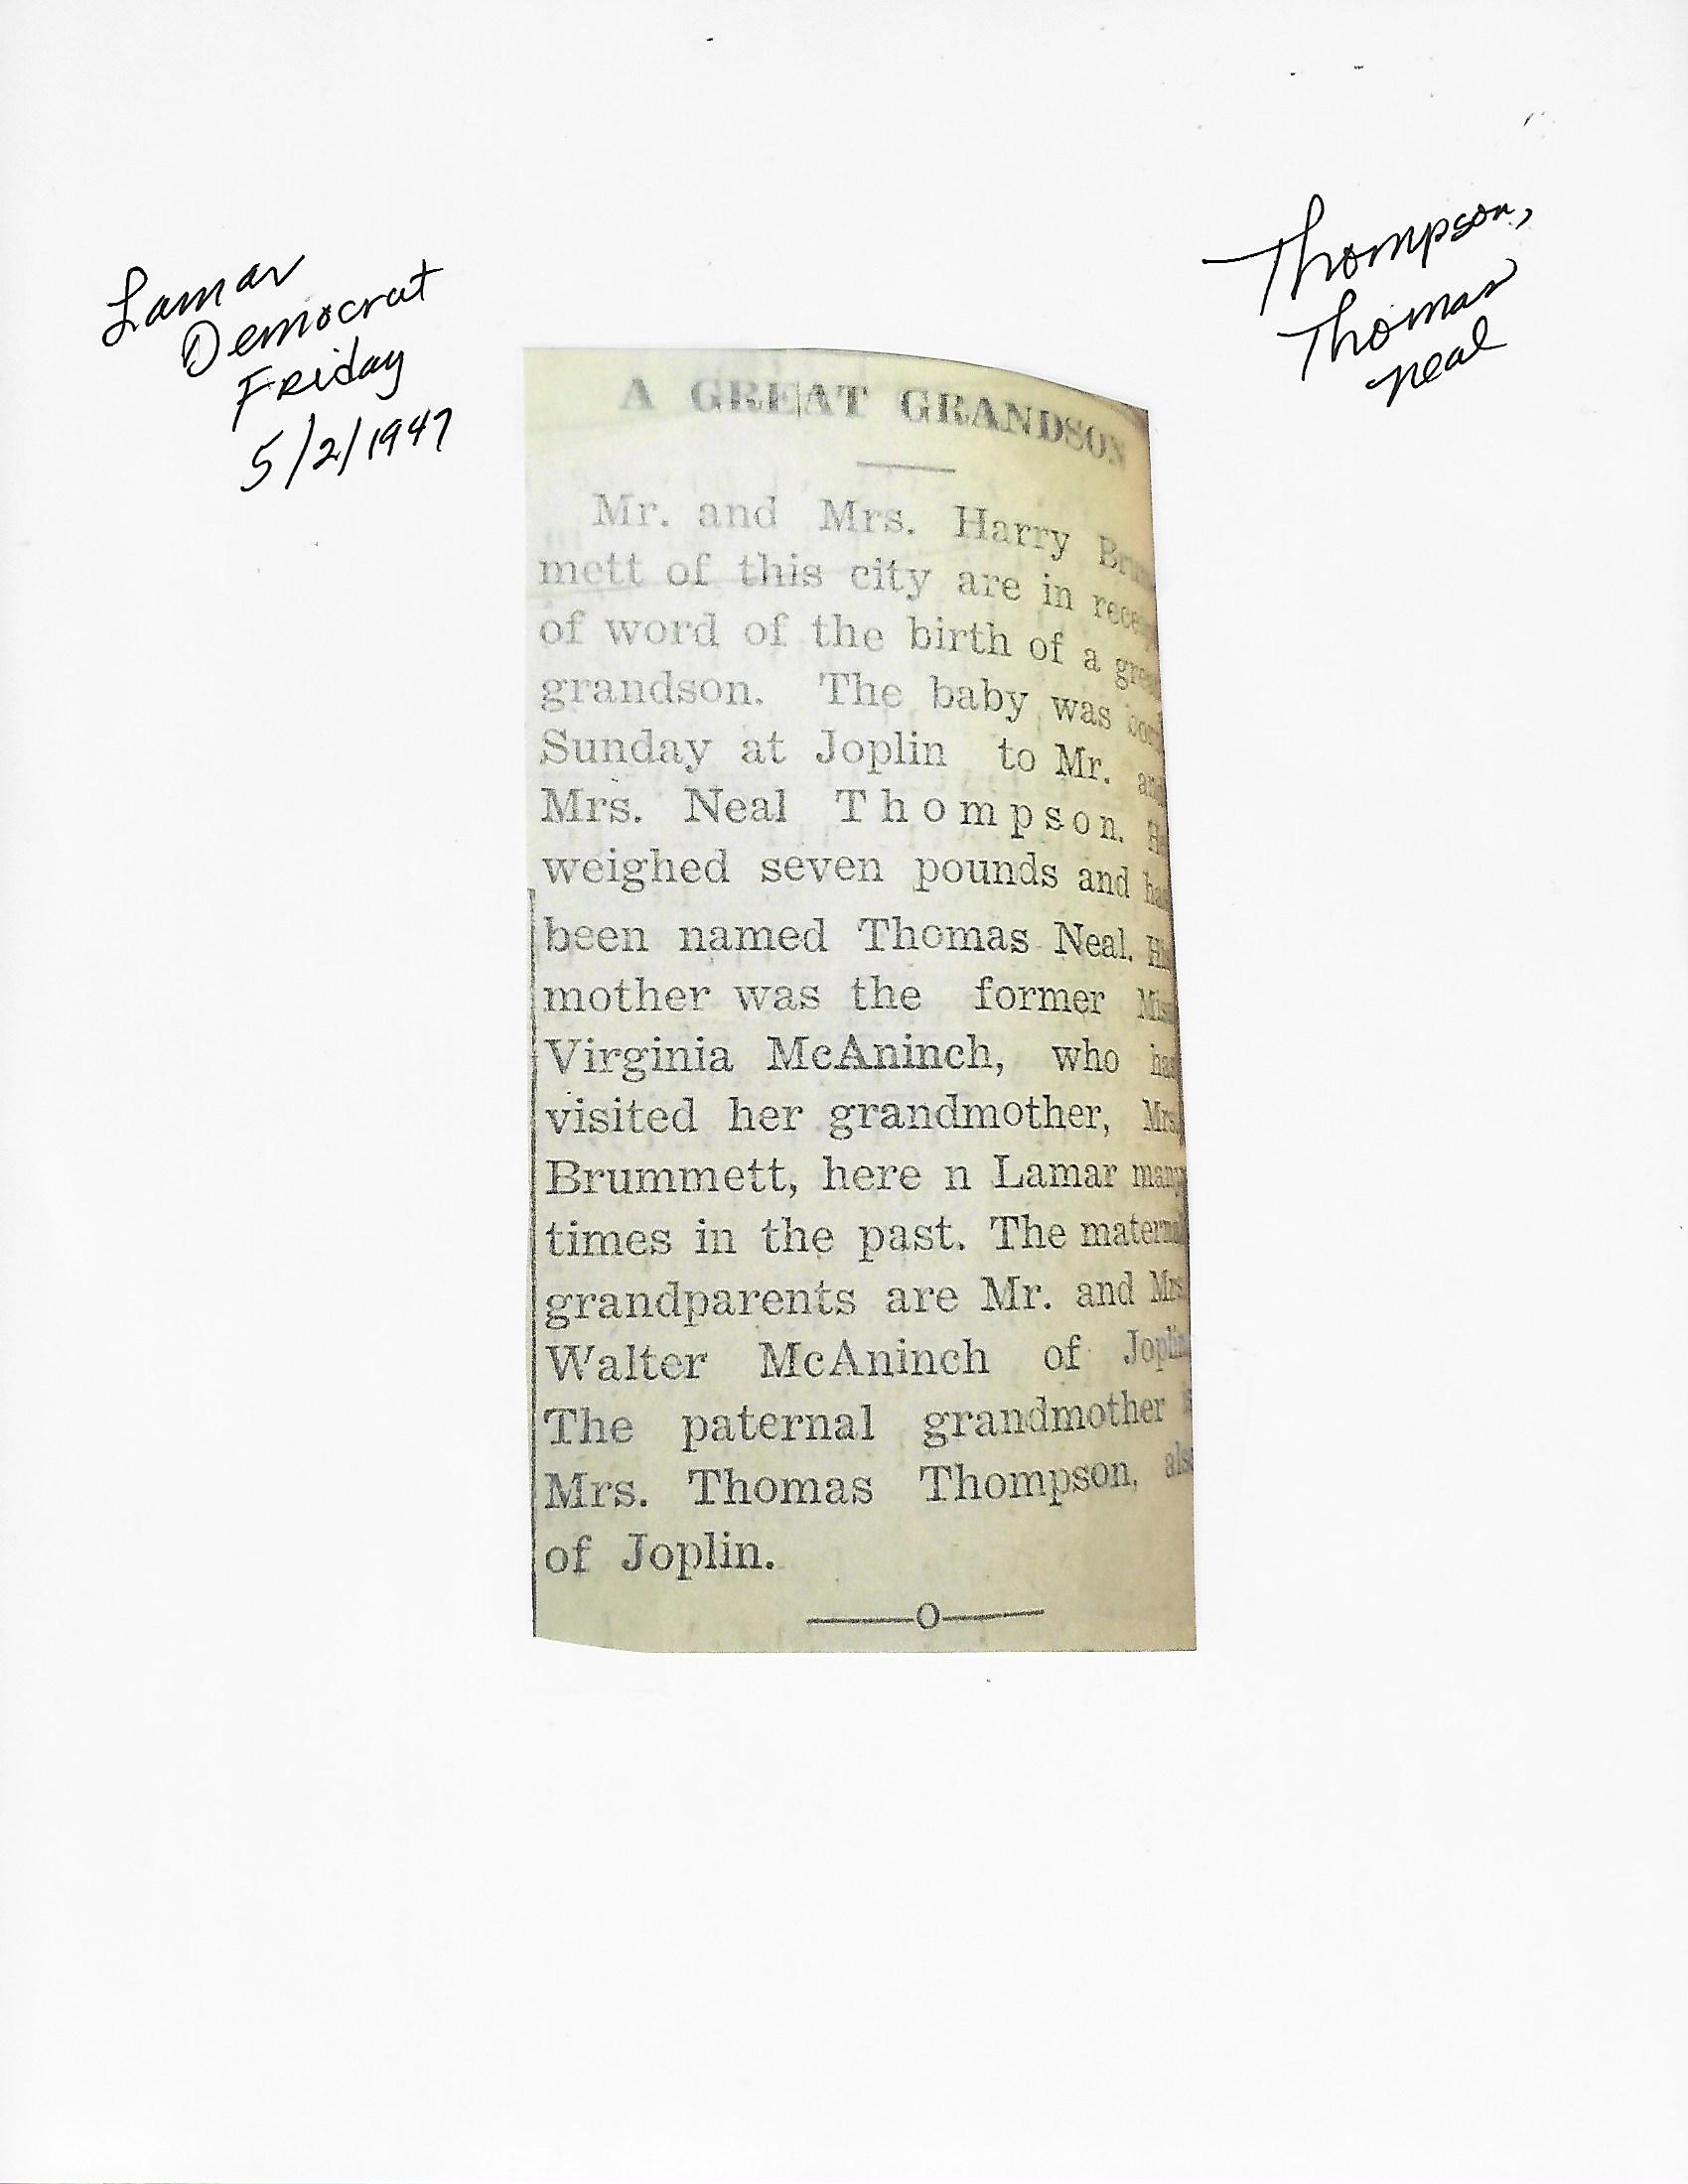 Lamar
Democrat
Friday
5/2/1947
Thompson,
Thomas
Neal
A GREAT GRANDSON
Mr. and Mrs. Harry Brum
mett of this city are in receip
of word of the birth of a grea
grandson. The baby was born
Sunday at Joplin to Mr. and
Mrs. Neal Thompson. He
weighed seven pounds and has
been named Thomas Neal. His
mother was the former Miss
Virginia McAninch, who has
visited her grandmother, Mrs.
Brummett, here n Lamar many
times in the past. The maternal
grandparents are Mr. and Mrs.
Walter McAninch of Joplin.
The paternal grandmother is
Mrs. Thomas Thompson, also
of Joplin.
——o——